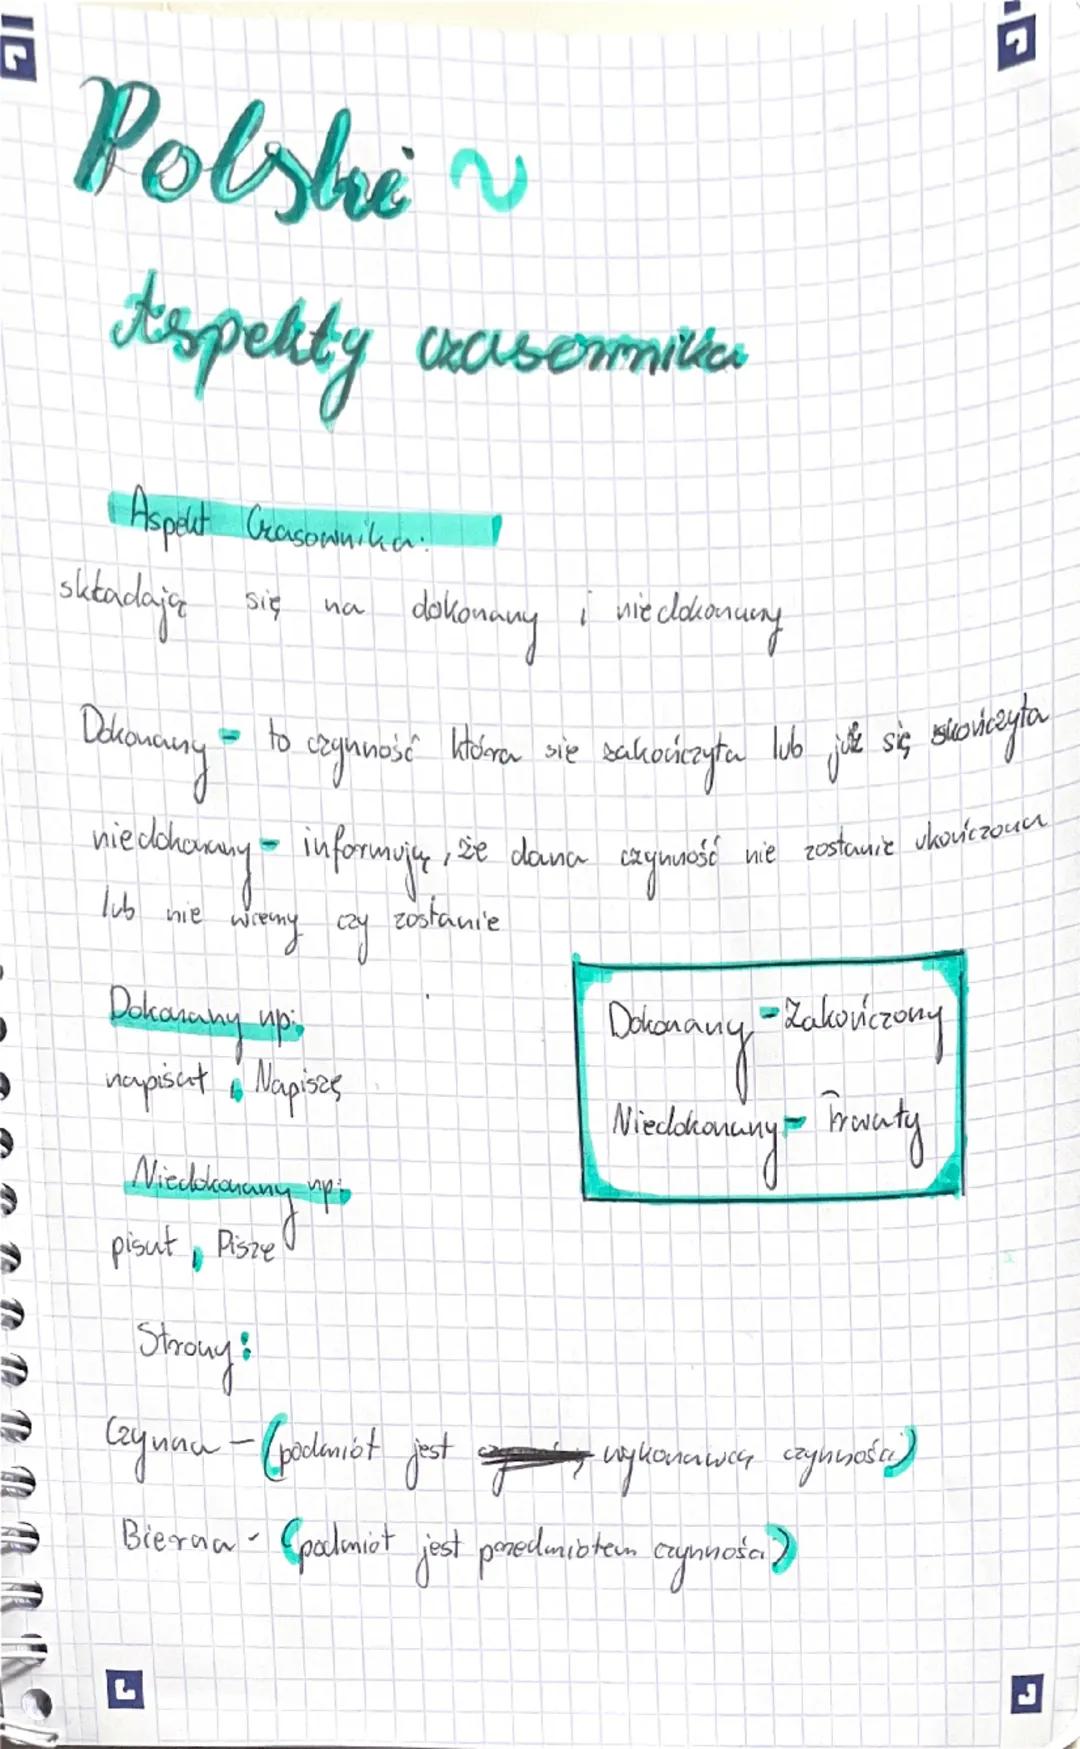 Polski ~
Aspekty czasownika
Aspekt Czasownika:
składają się na dokonany i niedokonany
Dokonany - to czynność która sie zakończyła lub już się skończyła
niedokonany - informują, że dana czynność nie zostanie ukończona
lub nie wiemy czy zostanie
Dokonany np:
napisał, Napiszę
Dokonany - Zakończony
Niedokonany - Trwały
Niedokonany np:
pisał, Piszę
Strony:
Czynna - (podmiot jest wykonawcą czynności)
Bierna - (podmiot jest przedmiotem czynności)